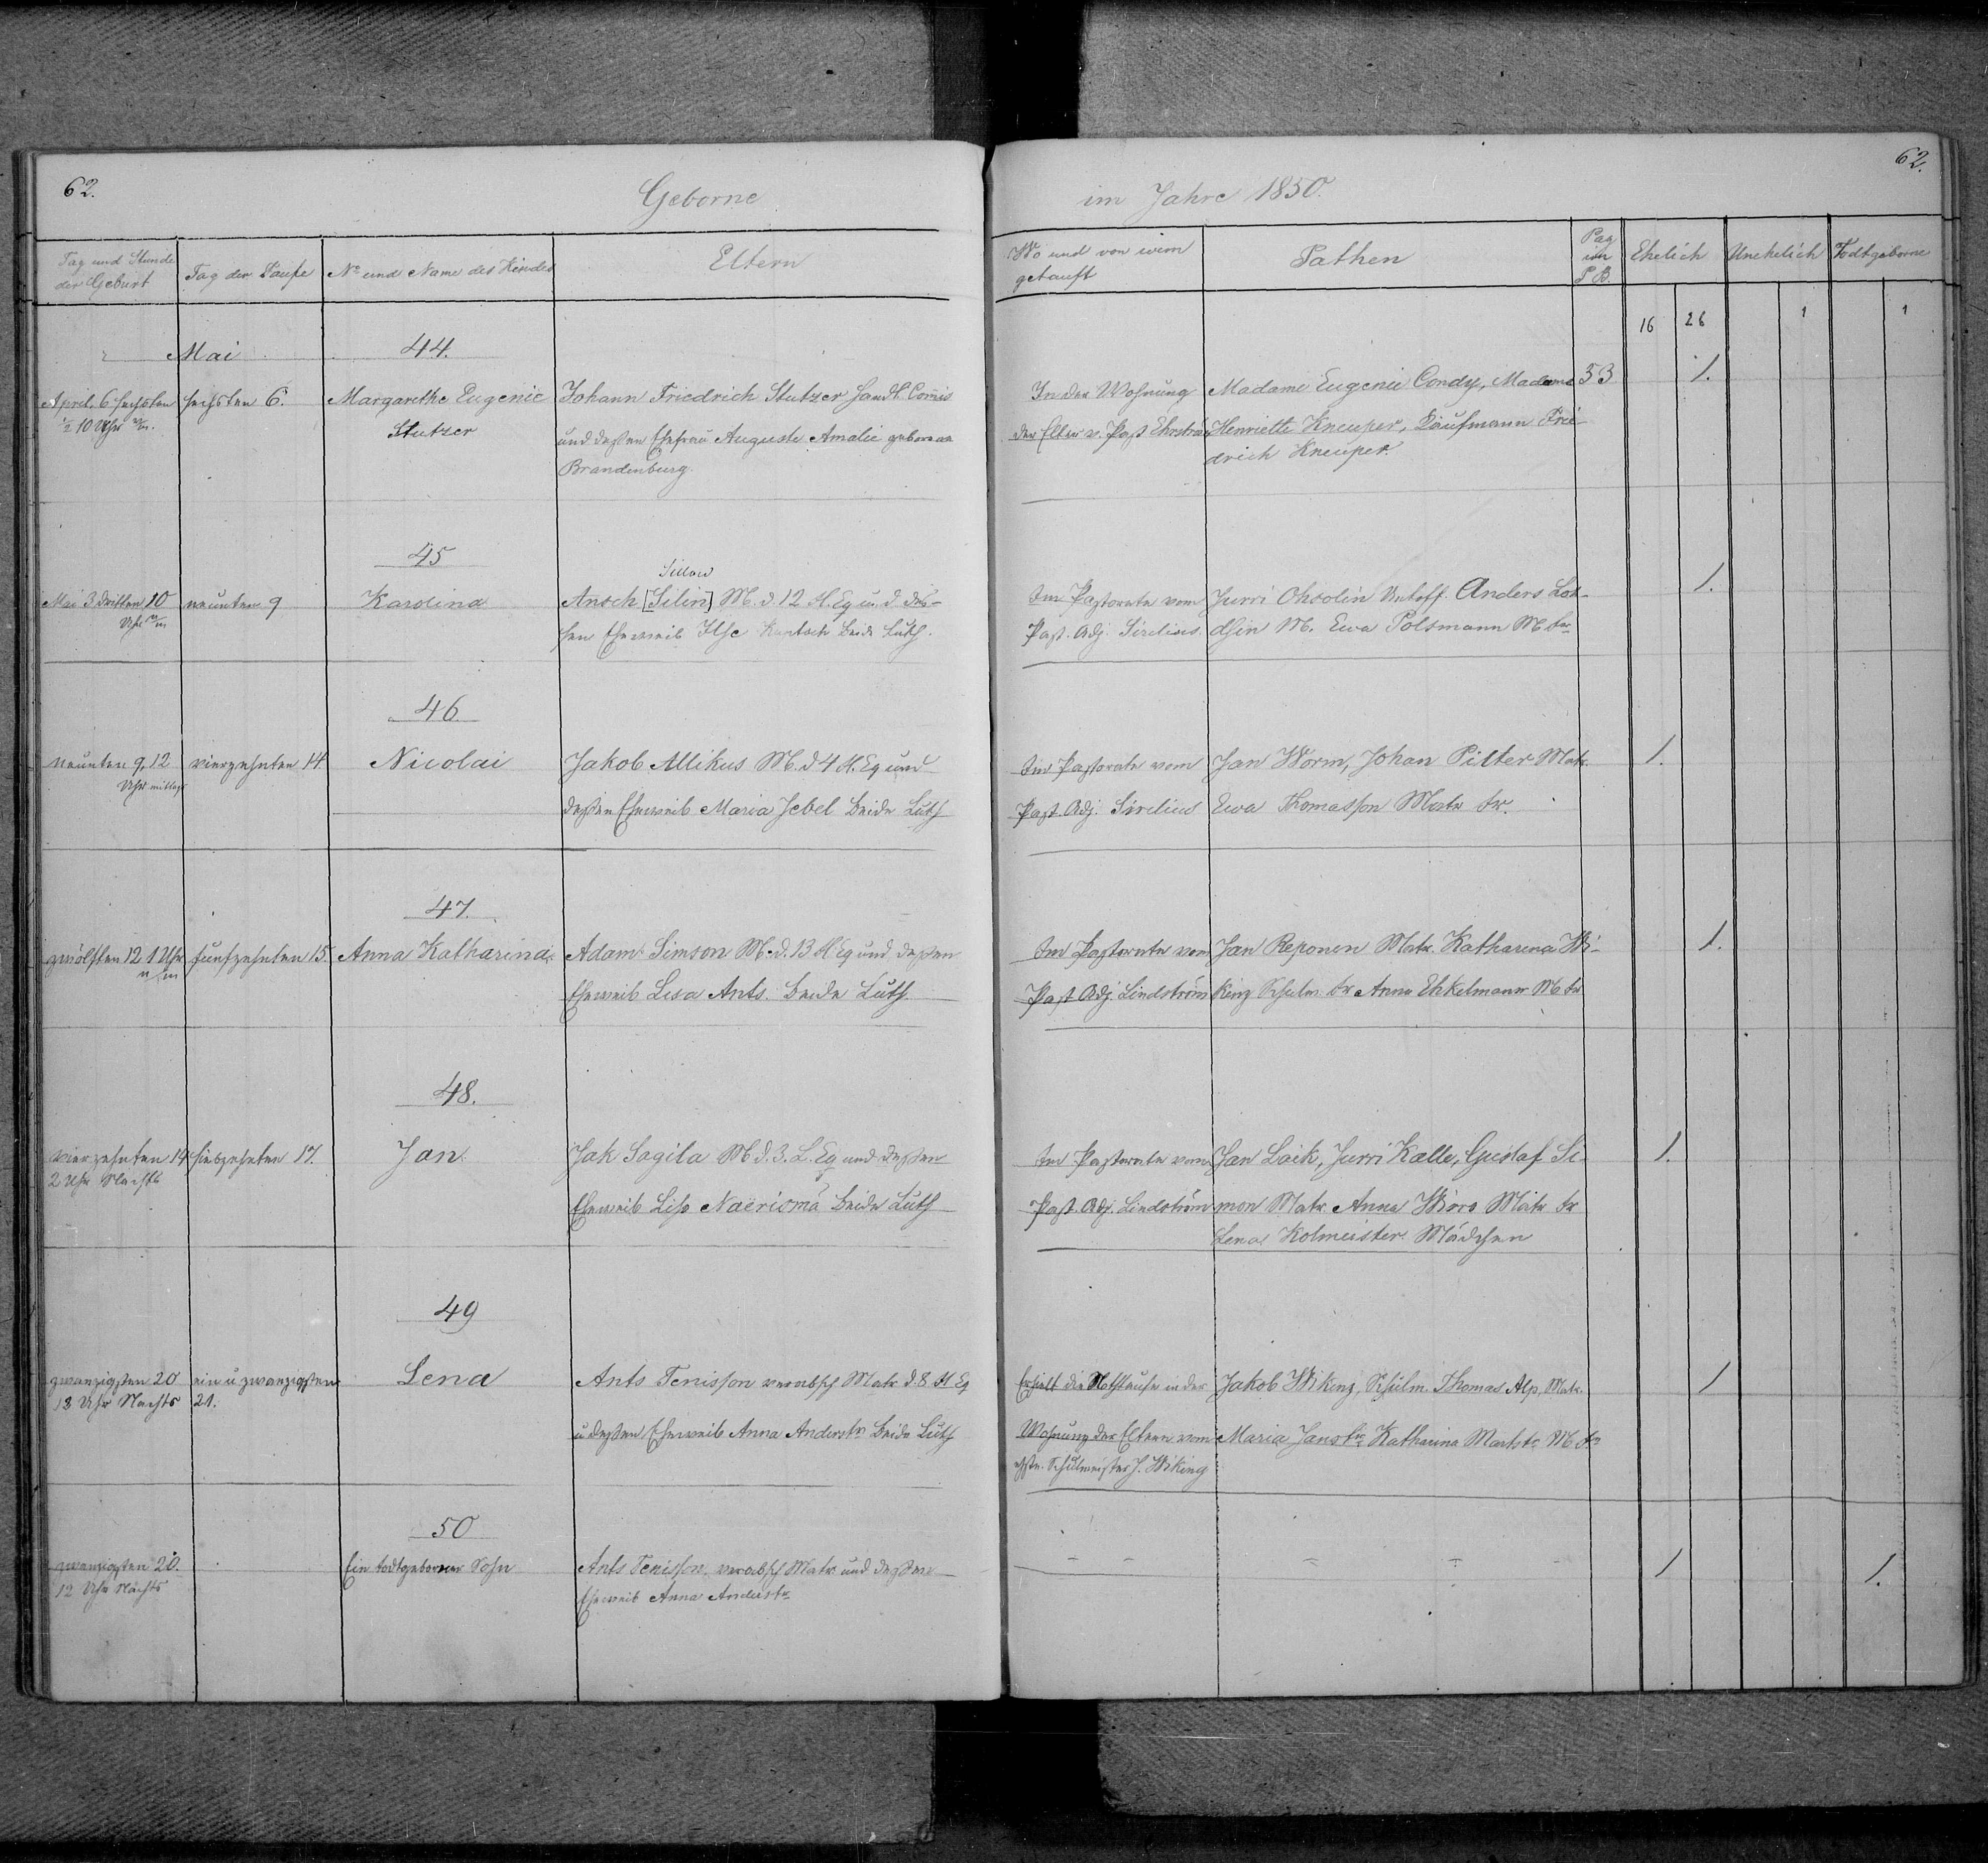 62.
Geborne
im Jahre 1850.
62.
Tag und Stunde der Geburt
Tag der Taufe
No und Name des Kindes
Eltern
Wo und von wem getauft
Pathen
Pag im P B.
Ehelich
Unehelich
Todtgeborne
16 26 1 1
Mai
44.
April. 6 sechsten
1/2 10 Uhr
sechsten 6.
Margarethe Eugenie
Stutzer
Johann Friedrich Stutzer Handl. Comis
und deßen Ehefrau Auguste Amalie geborene
Brandenburg.
In der Wohnung
der Eltern v. Past
Madame Eugenie Condy, Madame
Henriette Kneuper, Kaufmann Frie-
drich Kneuper.
53
1.
45
Mai 3 dritten 10
Uhr
neunten 9
Karolina
Sillow
Ansch [Silin] M. d. 12 H. Eq und des-
sen Eheweib Ilse Kantsch beide Luth.
Im Pastorate vom
Past. Adj. Sirelius
Jurri Ohsolin Untoff. Anders Loh-
dsin M. Ewa Polsmann M. fr
1.
46.
neunten 9, 12
Uhr mittags
vierzehnten 14
Nicolai
Jakob Allikus M. d 4 H. Eq und
deßen Eheweib Maria Jebel beide Luth
Im Pastorate vom
Past. Adj. Sirelius
Jan Worm, Johan Pitter Matr.
Ewa Thomasson Matr fr.
1.
47.
zwölften 12 1 Uhr
n m
funfzehnten 15.
Anna Katharina
Adam Simson M. d. 13 H Eq und deßen
Eheweib Lisa Ants. beide Luth.
Im Pastorate vom
Past Adj. Lindström
Jan Reponen Matr. Katharina Wi-
king Schulm. fr Anna Ehkelmann M fr
1.
48.
vierzehnten 14
2 Uhr Nachts
siebzehnten 17.
Jan
Jak Sagita M d. 3. L. Eq und deßen
Eheweib Lisa Naerismä beide Luth
Im Pastorate vom
Past Adj. Lindström
Jan Laik, Jurri Kalle, Gustaf Si-
mon Matr. Anna Wiro Matr fr
Lena Kolmeister Mädchen
1.
49
zwanzigsten 20
Uhr Nachts
ein u zwanzigsten
21.
Lena
Ants Tenisson verabsch Matr d. 8 H Eq
u deßen Eheweib Anna Anderstr beide Luth
Erhielt die Nothtaufe in der
Wohnung der Eltern vom
Schulmeister J. Wiking
Jakob Wiking, Schulm. Thomas Alp, Matr.
Maria Janstr Katharina Martstr M fr
1
50
zwanzigsten 20.
12 Uhr Nachts
Ein todtgeborner Sohn
Ants Tenisson, verabsch Matr und deßen
Eheweib Anna Anderstr
1
1.